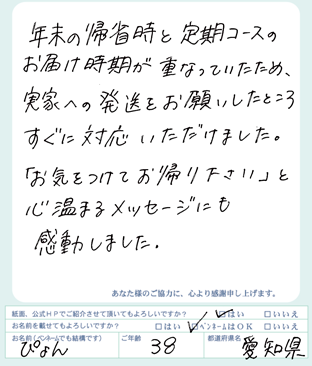 年末の帰省時と定期コースの
お届け時期が重なっていたため、
実家への発送をお願いしたところ
すぐに対応いただけました。
「お気をつけてお帰り下さい」と
心温まるメッセージにも
感動しました。
あなた様のご協力に、心より感謝申し上げます。
紙面、公式HPでご紹介させて頂いてもよろしいですか? ☑はい □いいえ
お名前を載せてもよろしいですか? □はい ☑ペンネームはOK □いいえ
お名前(ペンネームでも結構です) ご年齢 都道府県名
ぴょん 38 愛知県